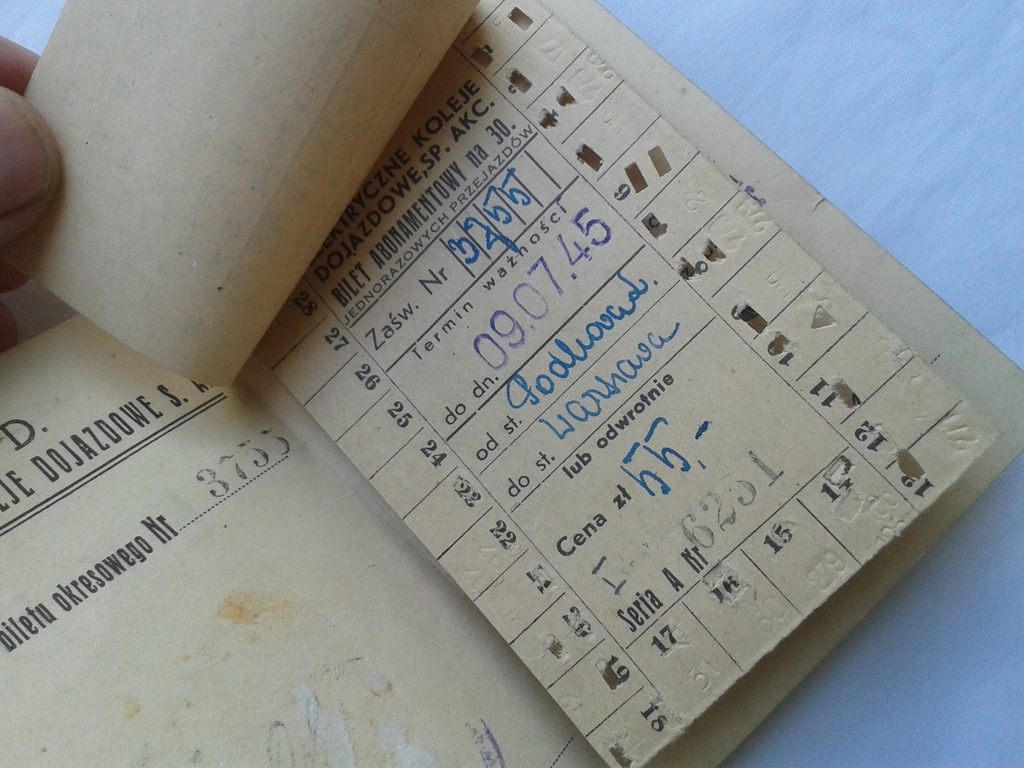 D.
JE DOJAZDOWE S. A
biletu okresowego Nr 3755
TRYCZNE KOLEJE
DOJAZDOWE, SP. AKC.
BILET ABONAMENTOWY na 30.
JEDNORAZOWYCH PRZEJAZDÓW
Zaśw. Nr 3755
Termin ważności
do dn. 09.07.45
od st. Podkowa L.
do st. Warszawa
lub odwrotnie
Cena zł 55.-
Seria A Nr 6231
28
27
26
25
24
22
20
19
18
17
16
15
14
12
11
10
9